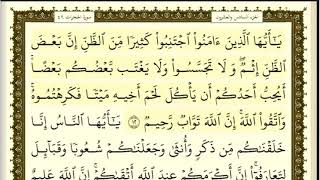 الجزء السادس والعشرون سورة الحجرات ٤٩
يَـٰٓأَيُّهَا ٱلَّذِينَ ءَامَنُوا۟ ٱجْتَنِبُوا۟ كَثِيرًا مِّنَ ٱلظَّنِّ إِنَّ بَعْضَ
ٱلظَّنِّ إِثْمٌ ۖ وَلَا تَجَسَّسُوا۟ وَلَا يَغْتَب بَّعْضُكُم بَعْضًا ۚ
أَيُحِبُّ أَحَدُكُمْ أَن يَأْكُلَ لَحْمَ أَخِيهِ مَيْتًا فَكَرِهْتُمُوهُ ۚ
وَٱتَّقُوا۟ ٱللَّهَ ۚ إِنَّ ٱللَّهَ تَوَّابٌ رَّحِيمٌ ﴿١٢﴾ يَـٰٓأَيُّهَا ٱلنَّاسُ إِنَّا
خَلَقْنَـٰكُم مِّن ذَكَرٍ وَأُنثَىٰ وَجَعَلْنَـٰكُمْ شُعُوبًا وَقَبَآئِلَ
لِتَعَارَفُوٓا۟ ۚ إِنَّ أَكْرَمَكُمْ عِندَ ٱللَّهِ أَتْقَىٰكُمْ ۚ إِنَّ ٱللَّهَ عَلِيمٌ